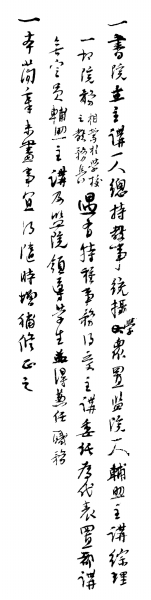 一書院立主講一人總持教事統攝學衆置監院一人輔助主講綜理
一切院務相當於學校之教務長遇有特種事務得受主講委托爲代表置都講
無定員輔助主講及監院領導學生並得兼任職務
一本簡章未盡事宜得隨時增補修正之